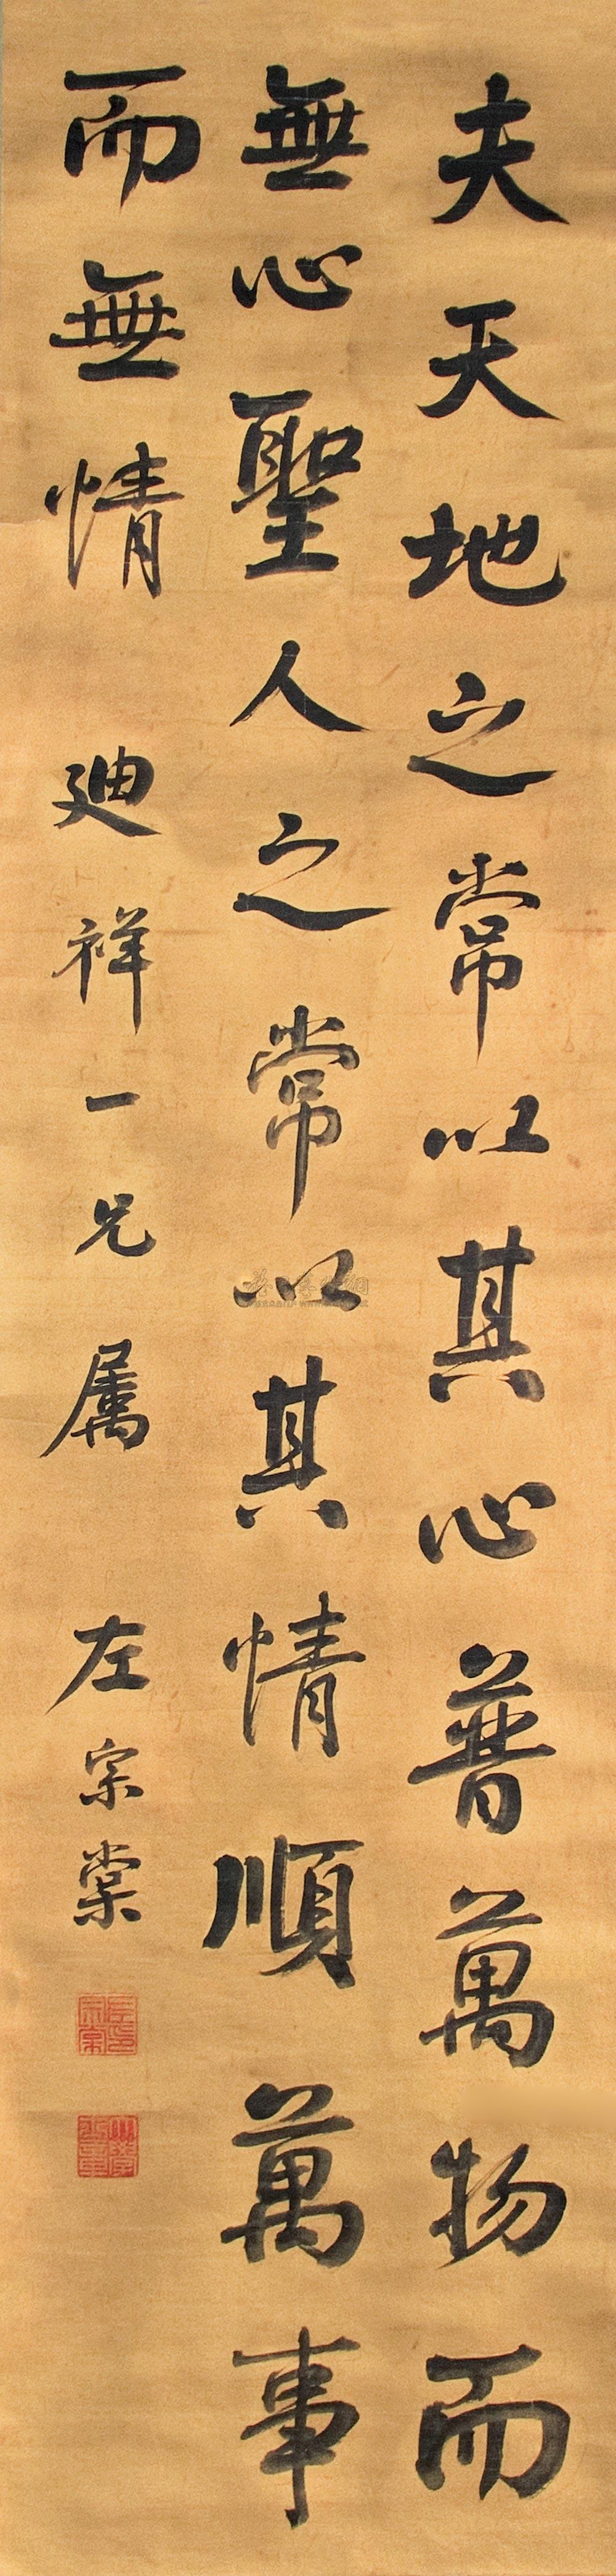 夫天地之常以其心普萬物而
無心聖人之常以其情順萬事
而無情 廸祥一兄属 左宗棠